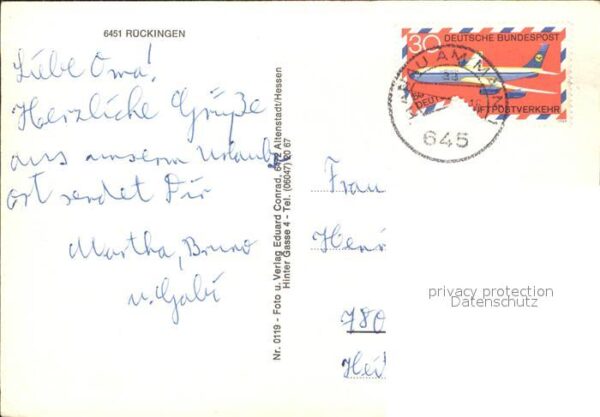 6451 RÜCKINGEN
Liebe Oma!
Herzliche Grüße
aus unserem Urlaubs
ort sendet Dir
Martha, Bruno
u. Gabi
Nr. 0119 - Foto u. Verlag Eduard Conrad, 6472 Altenstadt/Hessen
Hinter Gasse 4 - Tel. (06047) 20 67
30 DEUTSCHE BUNDESPOST
LUFTPOSTVERKEHR
HANAU AM MAIN 1
645
Frau
780
privacy protection
Datenschutz